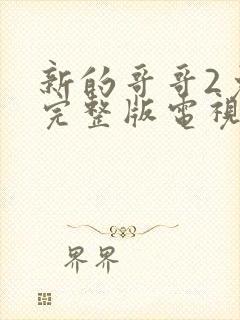 新的哥哥2
完整版電視
界界